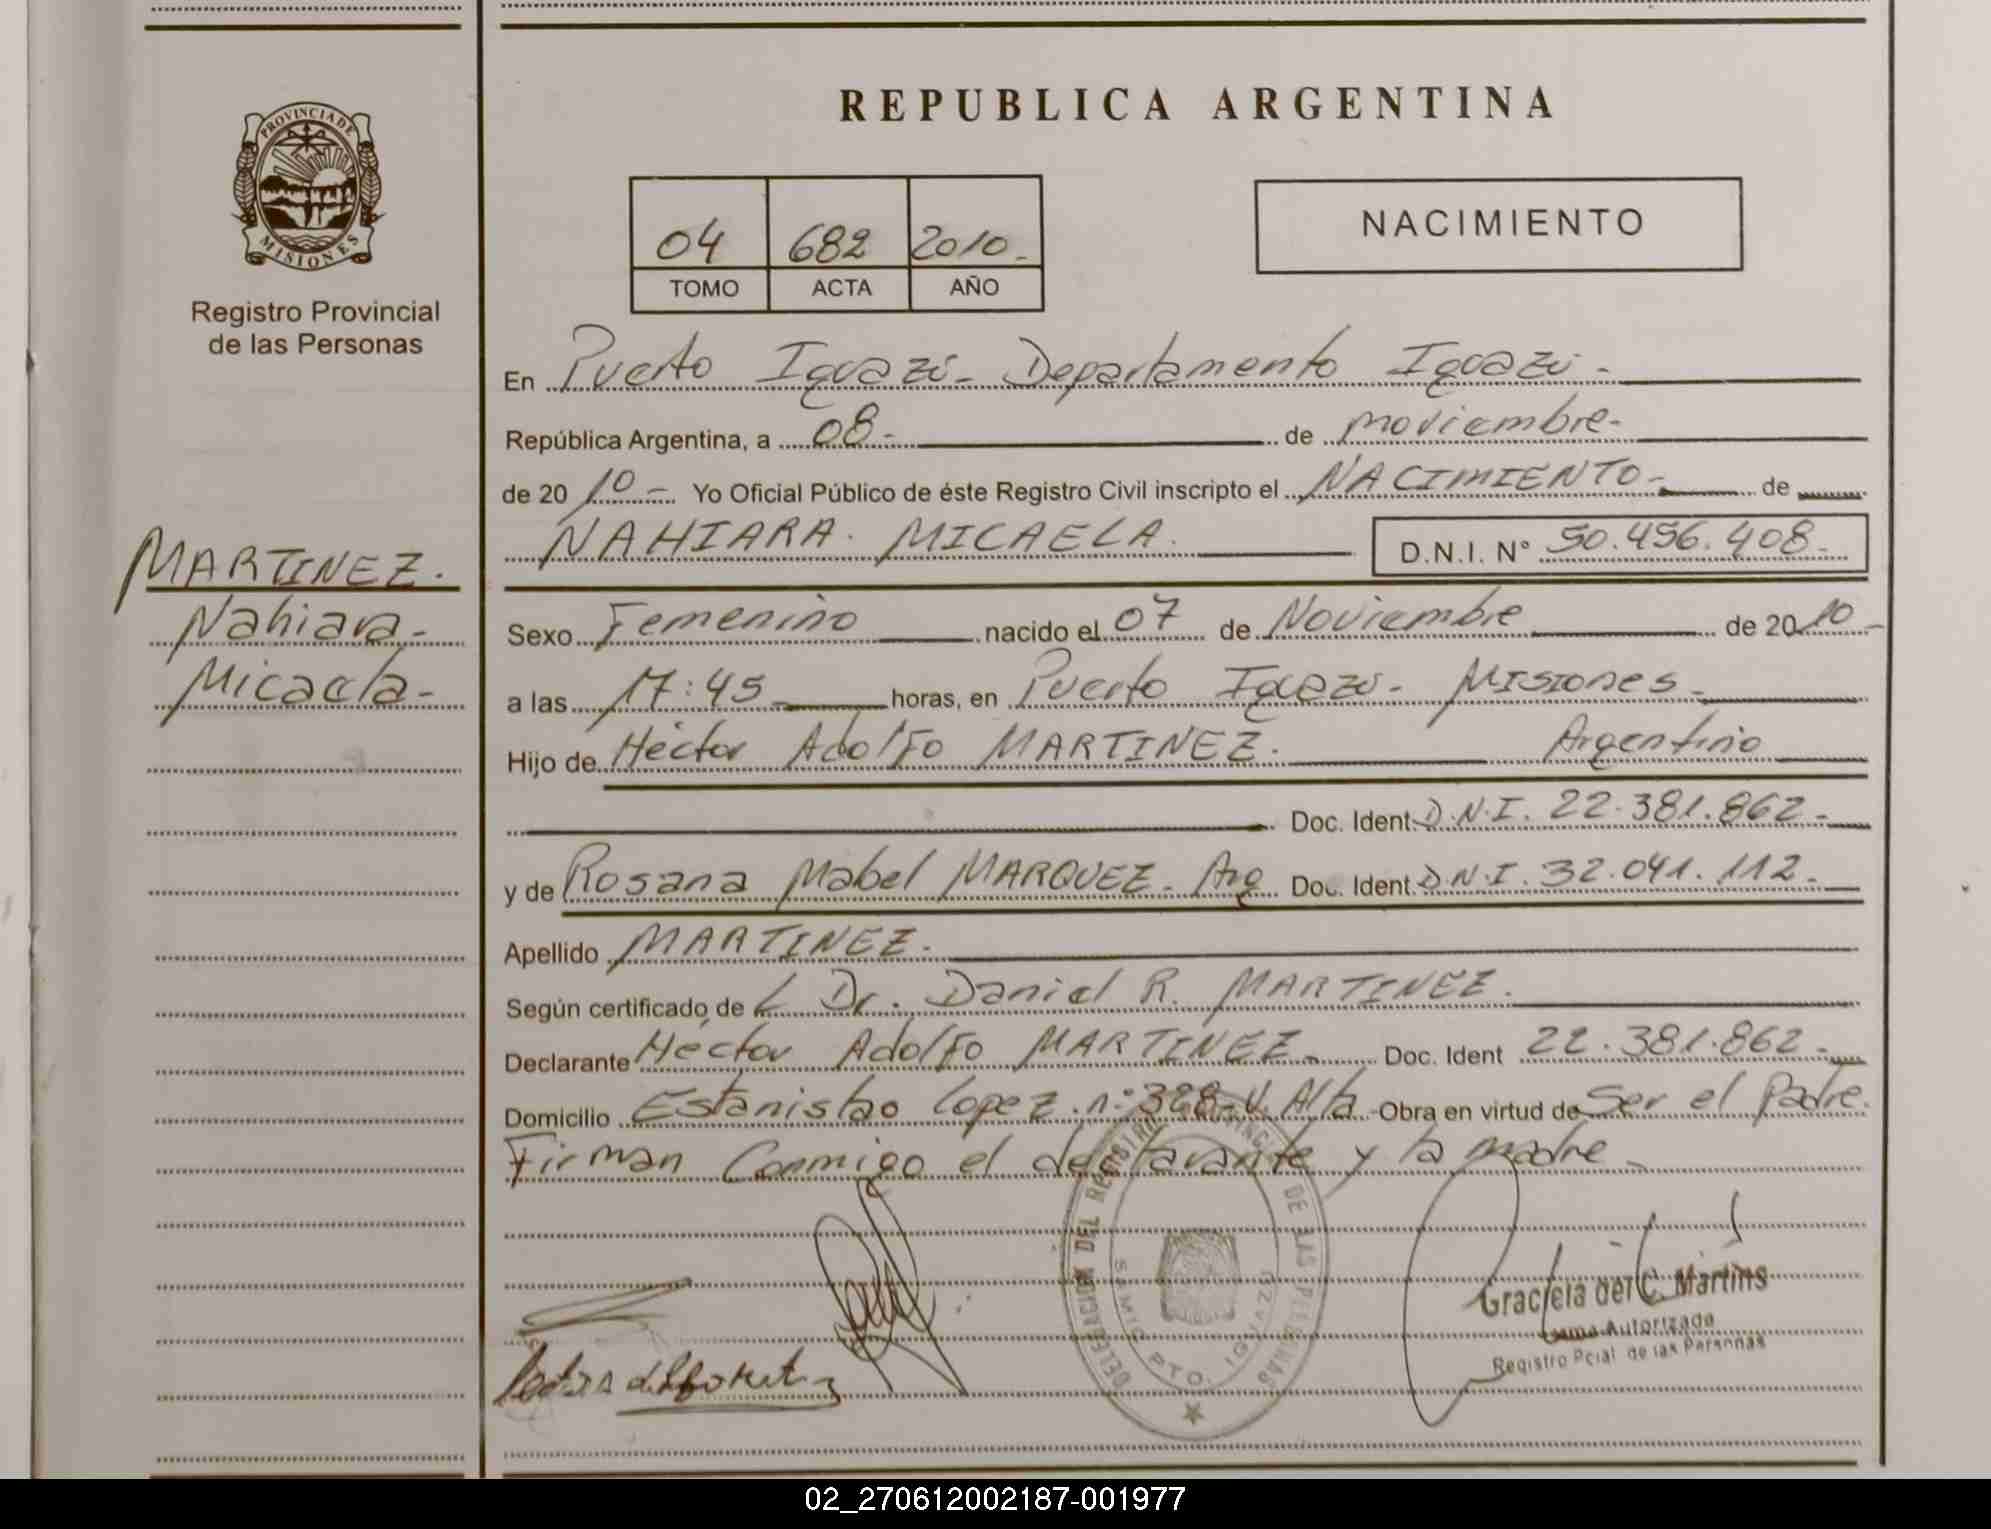 REPUBLICA ARGENTINA
PROVINCIA DE
MISIONES
Registro Provincial
de las Personas
04 682 2010-
TOMO ACTA AÑO
NACIMIENTO
En Puerto Iguazú- Departamento Iguazú-
República Argentina, a 08- de noviembre-
de 20 10- Yo Oficial Público de éste Registro Civil inscripto el NACIMIENTO- de
NAHIARA. MICAELA. D.N.I. N° 50.456.408-
MARTINEZ.
Nahiara-
Micaela-
Sexo Femenino nacido el 07 de Noviembre de 20 10-
a las 17:45- horas, en Puerto Iguazú- Misiones-
Hijo de Héctor Adolfo MARTINEZ. Argentino
Doc. Ident. D.N.I. 22.381.862-
y de Rosana Mabel MARQUEZ- Arg Doc. Ident. D.N.I. 32.041.112-
Apellido MARTINEZ.
Según certificado de L Dr. Daniel R. MARTINEZ.
Declarante Héctor Adolfo MARTINEZ- Doc. Ident 22.381.862-
Domicilio Estanislao Lopez n° 328-V. Alta Obra en virtud de Ser el Padre.
Firman Conmigo el declarante y la madre-
DELEGACION DEL REGISTRO PROVINCIAL DE LAS PERSONAS
PTO. IGUAZU
Graciela del C. Martins
Firma Autorizada
Registro Pcial. de las Personas
02_270612002187-001977